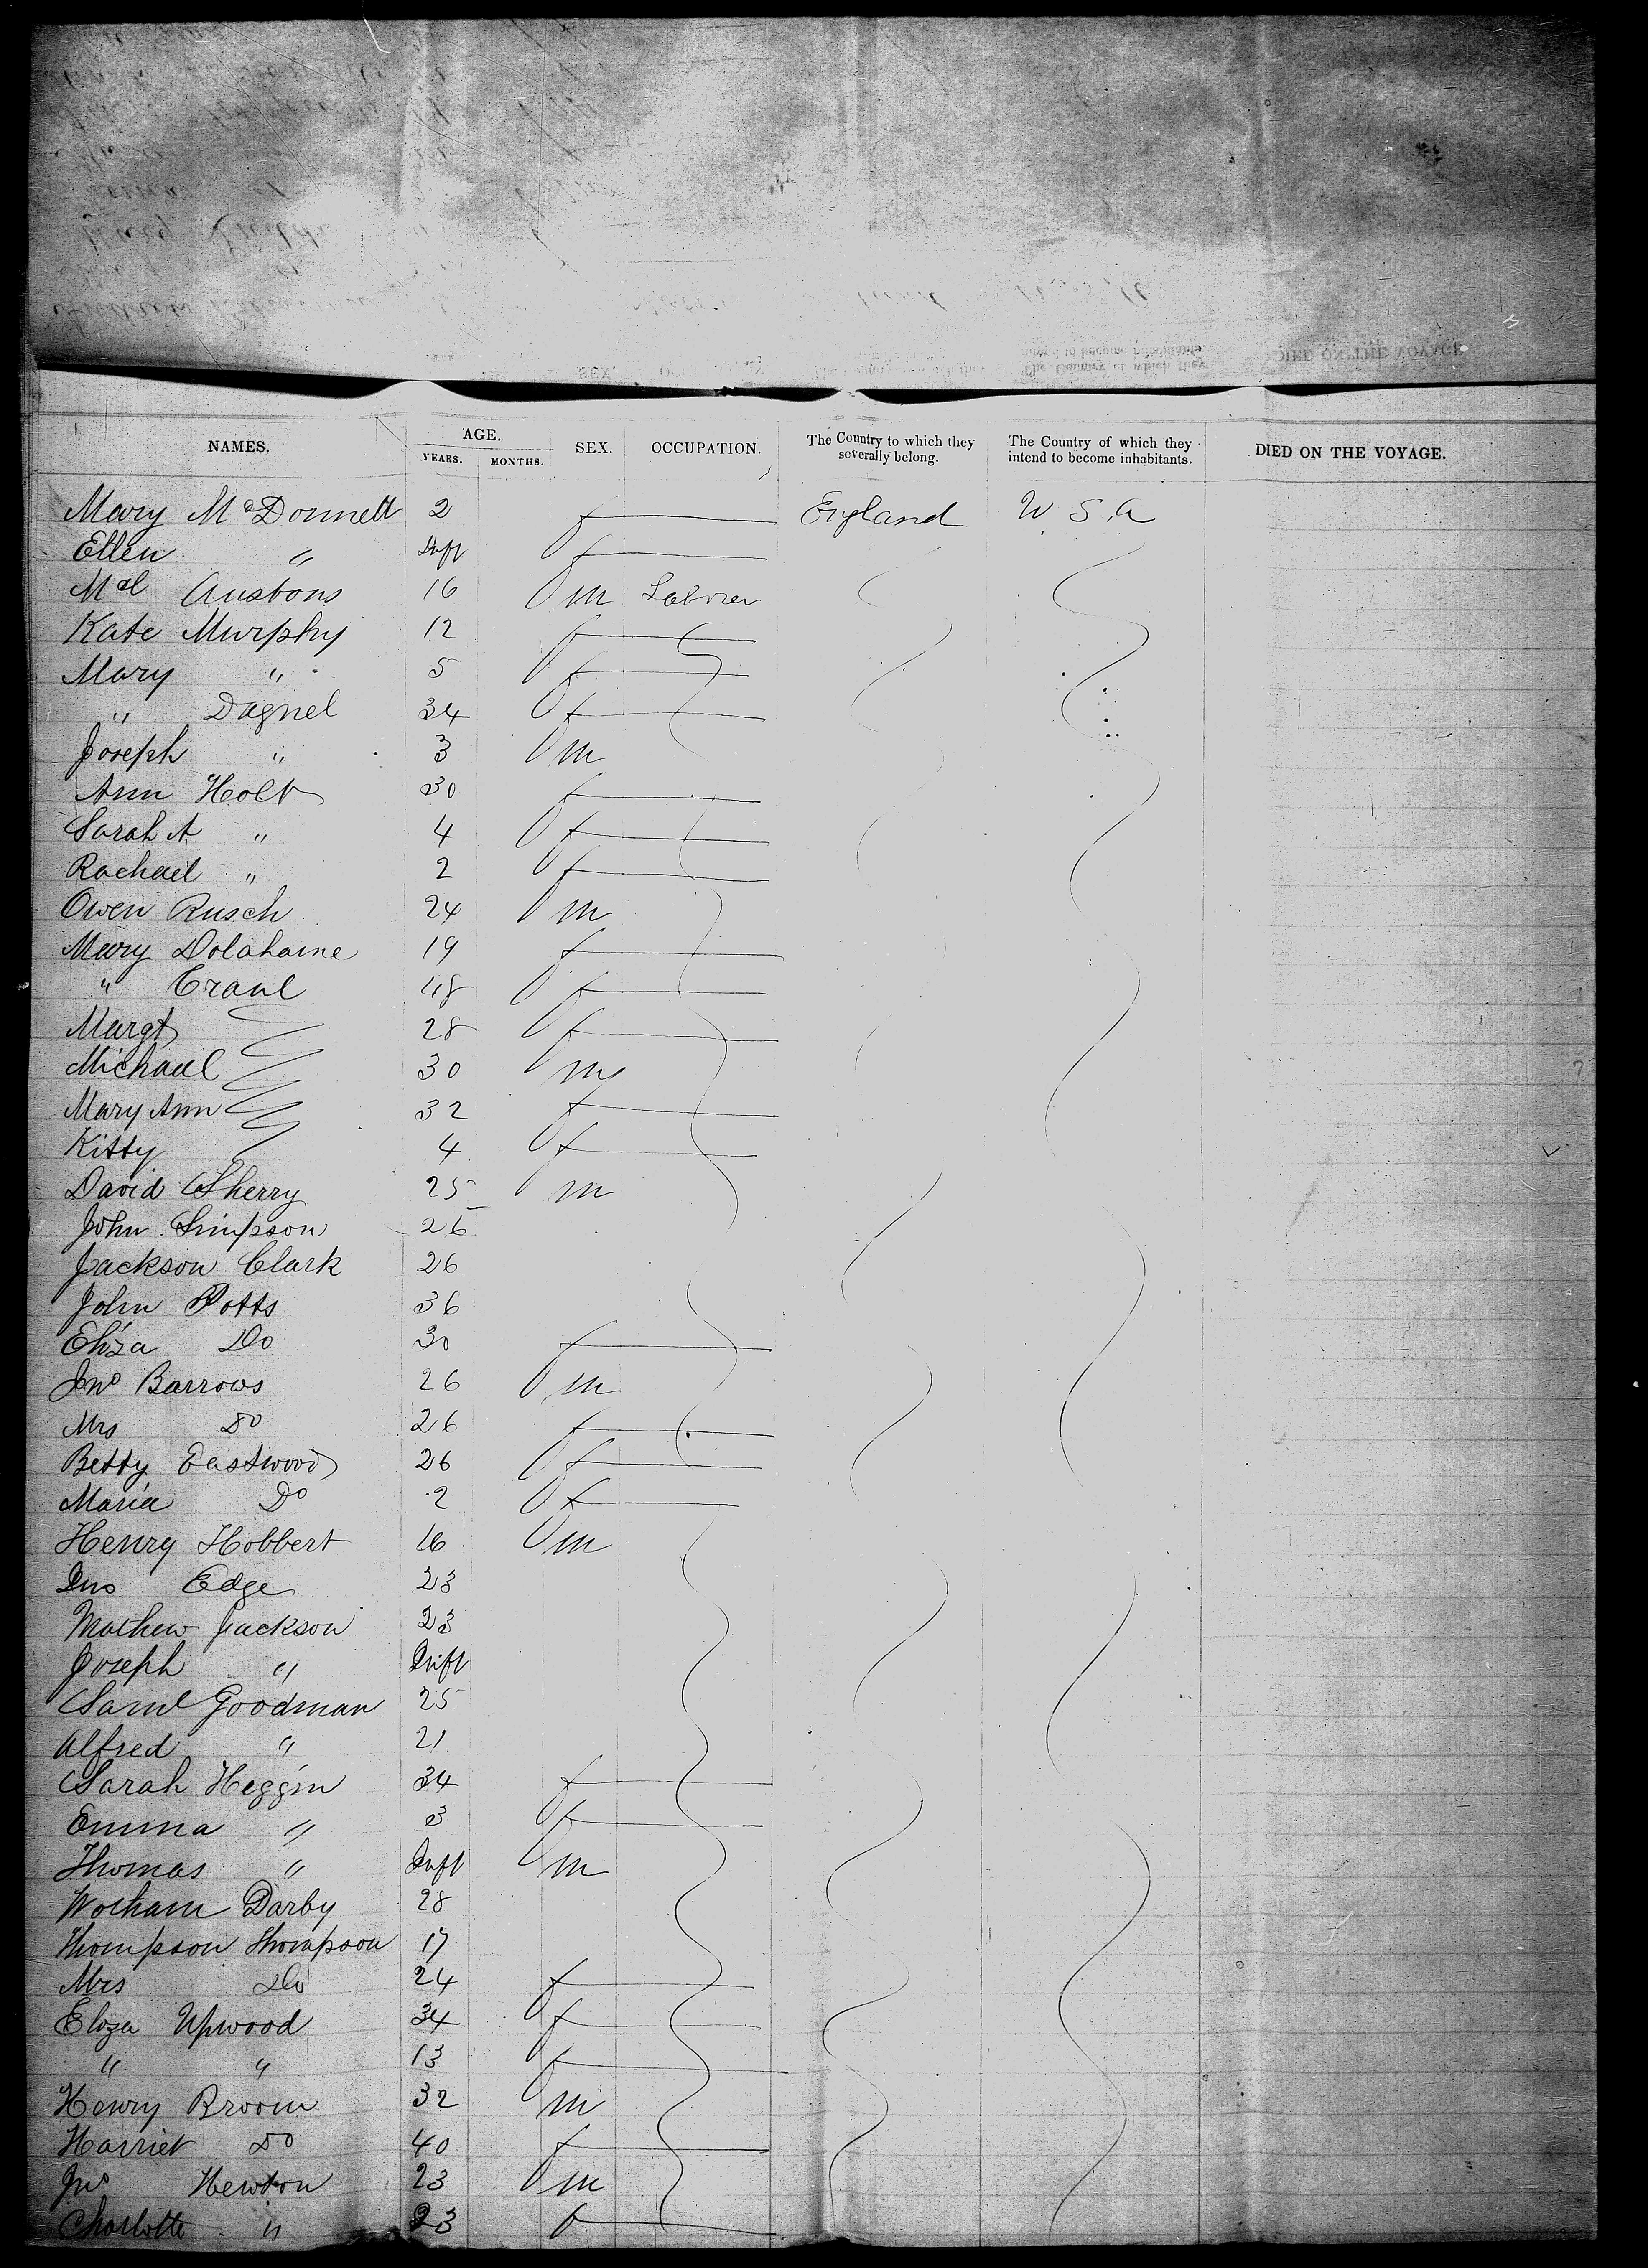 NAMES. AGE. YEARS. MONTHS. SEX. OCCUPATION. The Country to which they severally belong. The Country of which they intend to become inhabitants. DIED ON THE VOYAGE.
Mary McDonnell 2 f England U.S.A
Ellen " Inft f
Mcl Austons 16 m Laborer
Kate Murphy 12 f
Mary " 5 f
" Dagnel 34 f
Joseph " 3 m
Ann Holt 30 f
Sarah A " 4 f
Rachael " 2 f
Owen Rusch 24 m
Mary Dolahaine 19 f
" Craul 48 f
Margt 28 f
Michael 30 m
Mary Ann 32 f
Kitty 4 f
David Sherry 25 m
John Simpson 26
Jackson Clark 26
John Potts 36
Eliza Do 30 f
Jno Barrows 26 m
Mrs Do 26 f
Betty Eastwood 26 f
Maria Do 2 f
Henry Hobbert 16 m
Jno Edge 23
Mathew Jackson 23
Joseph " Inft
Saml Goodman 25
Alfred " 21
Sarah Heggin 34 f
Emma " 3 f
Thomas " Inft m
Wotham Darby 28
Thompson Thompson 17
Mrs Do 24 f
Eliza Upwood 34 f
" " 13 f
Henry Broom 32 m
Harriet Do 40 f
Jno Newton 23 m
Charlotte " 23 f